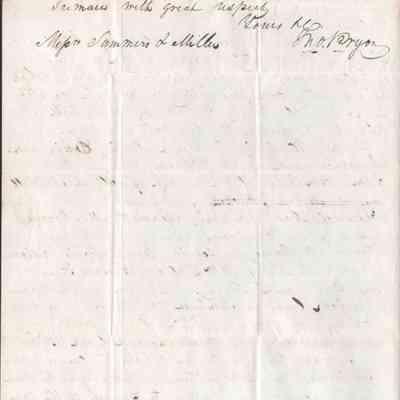 remain with great respect
Yours &c
Jno. Pryor
Messrs Summers & Miller